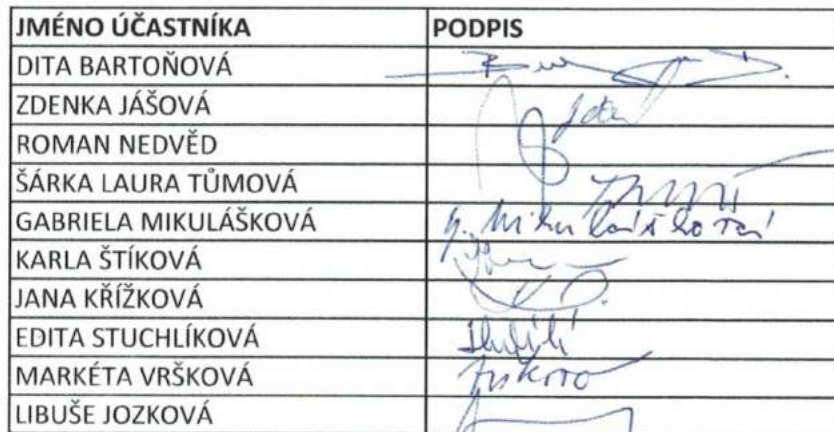 JMÉNO ÚČASTNÍKA PODPIS
DITA BARTOŇOVÁ
ZDENKA JÁŠOVÁ
ROMAN NEDVĚD
ŠÁRKA LAURA TŮMOVÁ
GABRIELA MIKULÁŠKOVÁ G. Mikulášková
KARLA ŠTÍKOVÁ
JANA KŘÍŽKOVÁ
EDITA STUCHLÍKOVÁ
MARKÉTA VRŠKOVÁ
LIBUŠE JOZKOVÁ